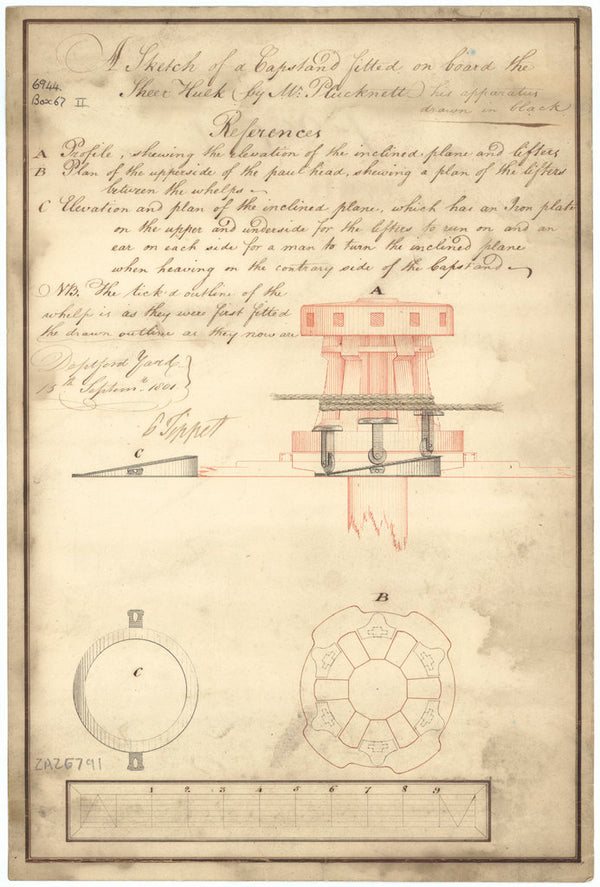 A Sketch of a Capstand fitted on board the
Sheer Hulk (by Mr. Plucknett) his apparatus
drawn in black.
6944.
Box 67 II
References
A Profile, shewing the elevation of the inclined plane and lifters
B Plan of the upperside of the paul head, shewing a plan of the lifters
between the whelps
C Elevation and plan of the inclined plane, which has an Iron plate
on the upper and underside for the lifters to run on and an
ear on each side for a man to turn the inclined plane
when heaving on the contrary side of the Capstand
NB. The tick'd outline of the
whelps is as they were first fitted
the drawn outline as they now are
Deptford Yard
15th Septemr. 1801
Tippett
A
C
B
C
ZAZ6791
1 2 3 4 5 6 7 8 9